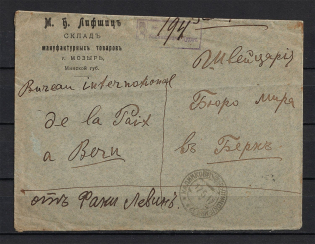 М. Б. Лифшицъ
СКЛАДЪ
мануфактурныхъ товаровъ
г. МОЗЫРЬ,
Минской губ.
194
Швейцарія
Bureau international
Бюро мира
de la Paix
въ Бернъ
a Bern
отъ Фани Левинъ